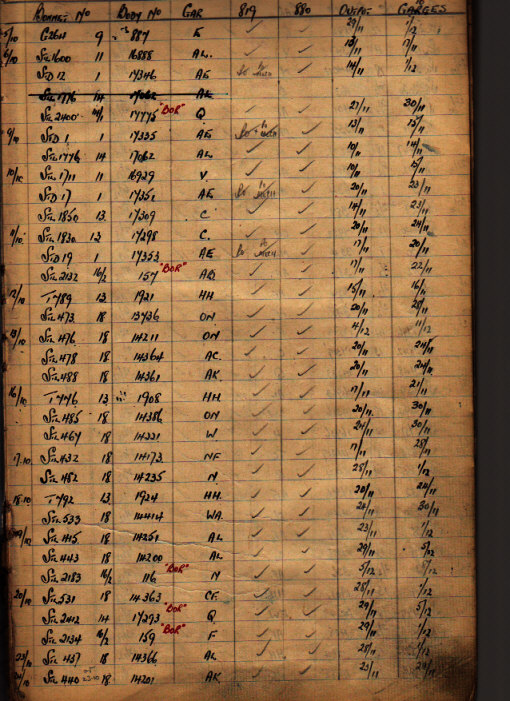 BONNET No BODY No CAR 819 880 OUTPUT TO GARAGES
5/10 G2611 9 887 E ✓ ✓ 29/11 1/12
6/10 STL 1600 11 16888 AL. ✓ ✓ 13/11 17/11
STD 12 1 17346 AE ✓ 14/11 1/12
STL 1776 14 17062 AL
STL 2400 17775 "BOR" Q ✓ ✓ 27/11 30/11
9/10 STD 1 1 17335 AE ✓ 13/11 15/11
STL 1776 14 17062 AL ✓ ✓ 10/11 14/11
10/10 STL 1711 11 16929 V ✓ ✓ 10/11 15/11
STD 17 1 17351 AE ✓ 20/11 23/11
STL 1850 13 17309 C ✓ ✓ 14/11 23/11
11/10 STL 1830 13 17298 C. ✓ ✓ 20/11 24/11
STD 19 1 17353 AE ✓ 17/11 20/11
STL 2132 16/2 157 "BOR" AD ✓ ✓ 17/11 22/11
12/10 T789 13 1921 HH ✓ ✓ 15/11 16/11
STL 473 18 13736 ON ✓ ✓ 20/11 28/11
13/10 STL 476 18 14211 ON ✓ ✓ 4/12 11/12
STL 478 18 14364 AC ✓ ✓ 20/11 24/11
STL 488 18 14361 AK ✓ ✓ 20/11 24/11
16/10 T746 13 1908 HH ✓ ✓ 17/11 21/11
STL 485 18 14386 ON ✓ ✓ 20/11 30/11
STL 467 18 14221 W ✓ ✓ 24/11 30/11
17.10 STL 432 18 14173 NF ✓ ✓ 17/11 28/11
STL 482 18 14235 N ✓ ✓ 28/11 1/12
18.10 T792 13 1924 HH ✓ ✓ 20/11 24/11
STL 533 18 14414 WA ✓ ✓ 30/11
19/10 STL 415 18 14251 AL ✓ ✓ 23/11 1/12
STL 443 18 14200 AL ✓ ✓ 29/11 5/12
STL 2183 16/2 116 "BOR" N ✓ ✓ 5/12
20/10 STL 531 18 14363 CF ✓ ✓ 28/11 1/12
STL 2412 14 17293 "BOR" Q ✓ ✓ 29/11 5/12
STL 2134 16/2 159 "BOR" F ✓ ✓ 29/11 1/12
23/10 STL 437 18 14366 AL ✓ ✓ 28/11 1/12
24/10 STL 440 18 14201 AK ✓ ✓ 23/11